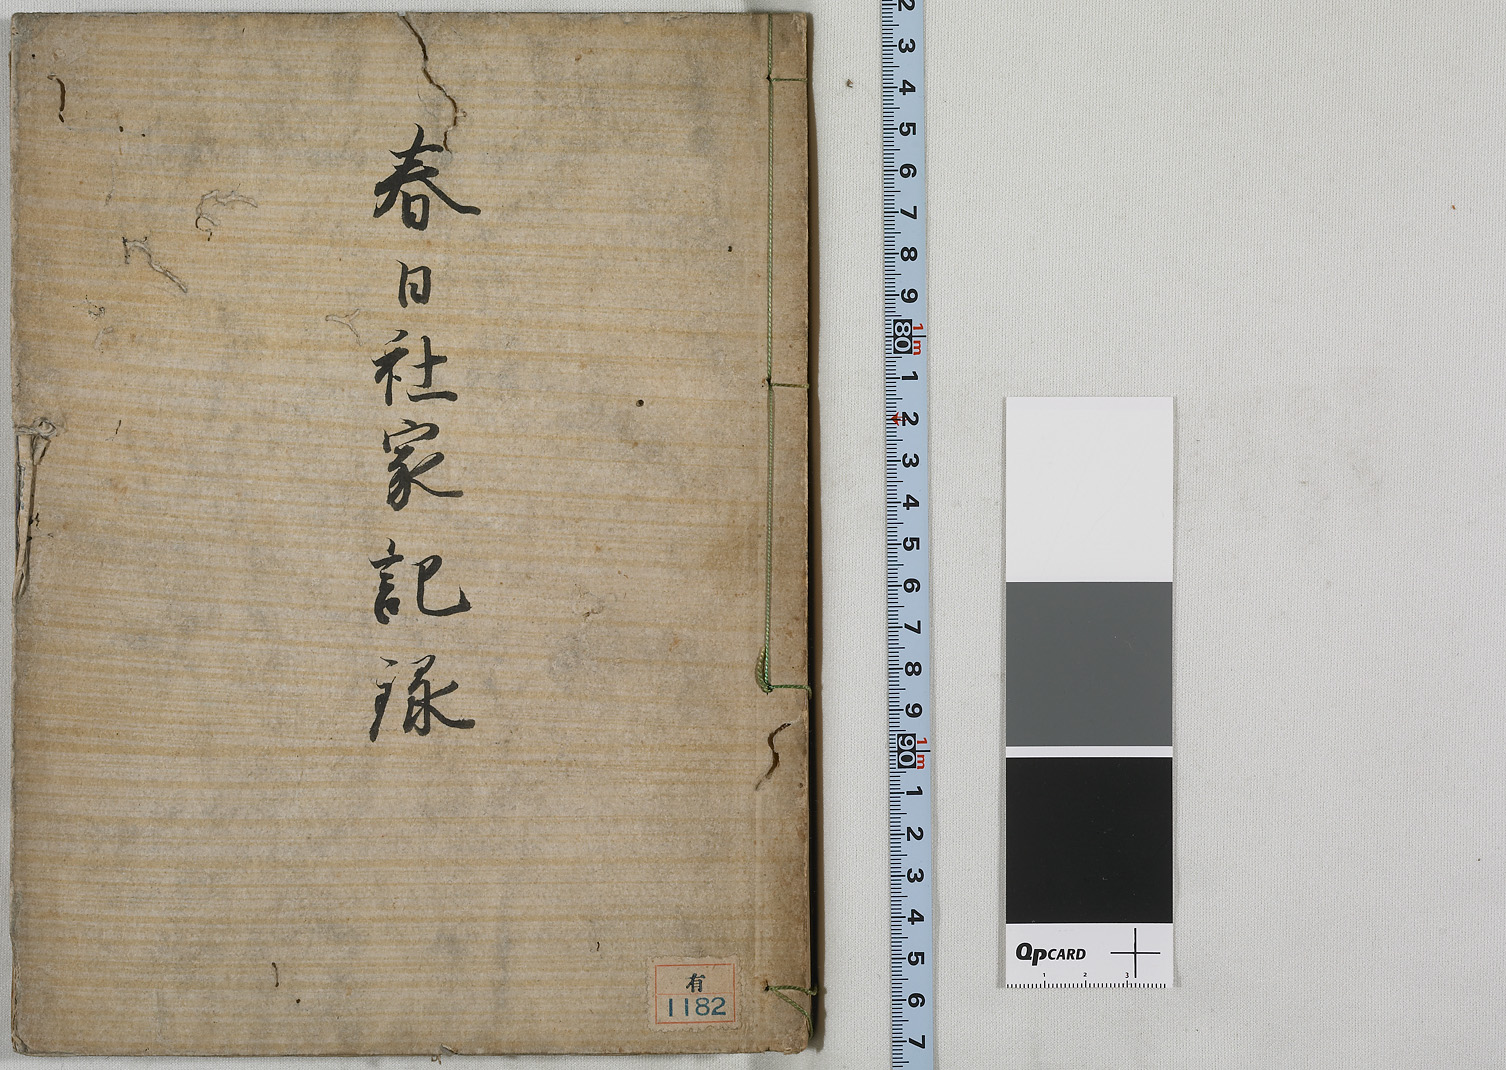 春日社家記録
有
1182
2
3
4
5
6
7
8
9
80 1m
1
2
3
4
5
6
7
8
9
90 1m
1
2
3
4
5
6
7
QPCARD
1 2 3